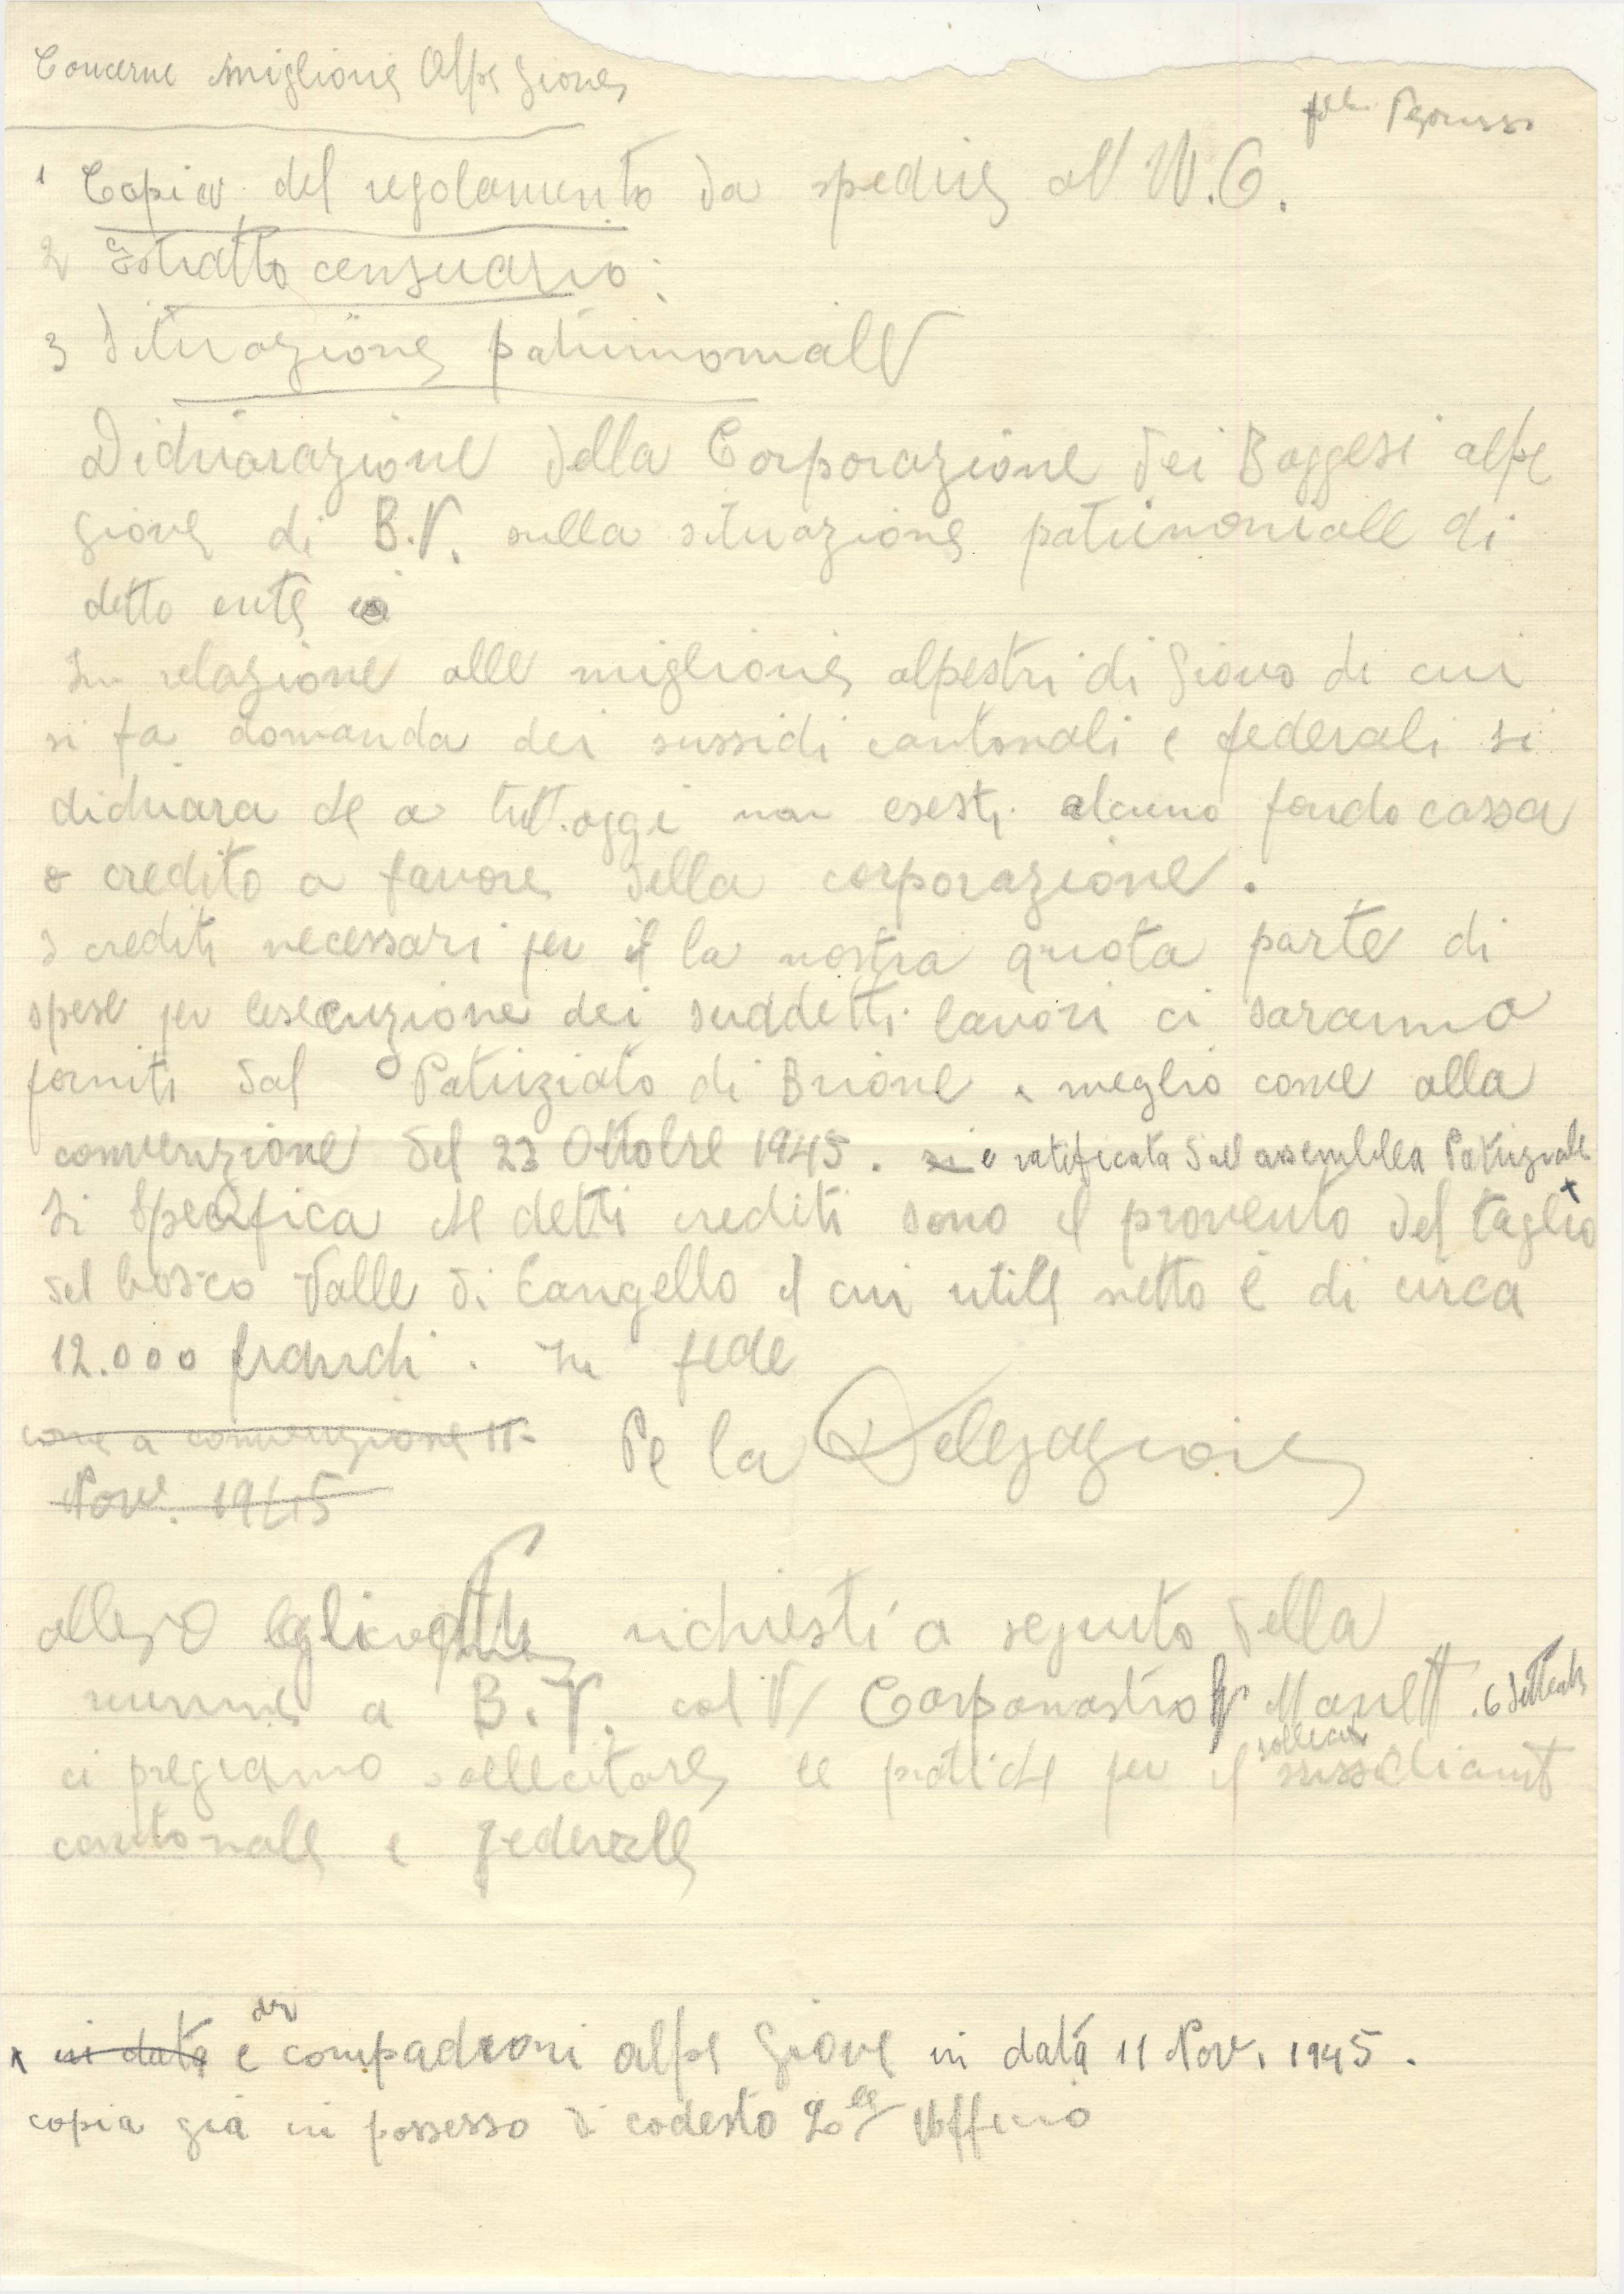 Concerne migliorie Alpe Giove
1 Copia del regolamento da spedire all' U.C.
2 Estratto censuario:
3 Situazione patrimoniale
Dichiarazione della Corporazione dei Boggesi alpe
Giove di B.V. sulla situazione patrimoniale di
detto ente
In relazione alle migliorie alpestri di Giove di cui
si fa domanda dei sussidi cantonali e federali si
dichiara che a tutt'oggi non esesti alcuno fondo cassa
o credito a favore della corporazione.
I crediti necessari per il la nostra quota parte di
spese per l'esecuzione dei suddetti lavori ci saranno
forniti dal Patriziato di Brione e meglio come alla
convenzione del 23 Ottobre 1945. si e ratificata dall'assemblea Patriziale x
Si specifica che detti crediti sono il provento del taglio
del bosco Valle di Cangello il cui utile netto è di circa
12.000 franchi. In fede
come a convenzione 11-
Nov. 1945
Pe la Delegazione
allegò gli richiesti a seguito della
riunione a B.V. col V/ Capomastro 6 Settemb
ci pregiamo sollecitare le pratiche per il sollecito sussidiamt
cantonale e federale
x in data e dei compadroni alpe Giove in data 11 Nov. 1945.
copia già in possesso di codesto Lo.le Ufficio